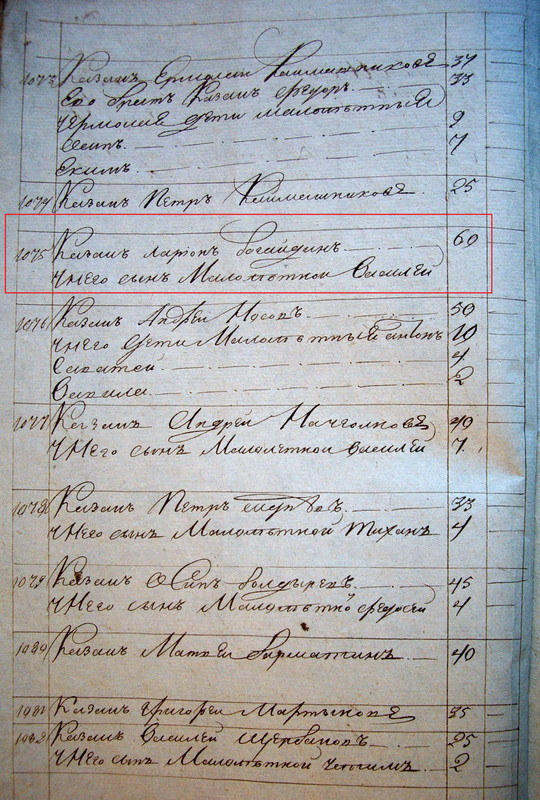 1073 Казакъ Ермолай Калмашниковъ 37
Ево братъ Казакъ Федоръ 33
У Ермолая дети малолѣтныя
Осипъ 9
Екимъ 7
1074 Казакъ Петръ Калмашниковъ 25
1075 Казакъ Ларион Богайдинъ 60
У Него сынъ Малолѣтной Василей
1076 Казакъ Андрей Носовъ 50
У Него дети Малолѣтныя Антонъ 10
Савватей 4
Вавила 2
1077 Казакъ Андрей 49
У Него сынъ Малолѣтной Василей 7
1078 Казакъ Петръ 33
У Него сынъ Малолѣтной Тиханъ 4
1079 Казакъ Осипъ Болдыревъ 45
У Него сынъ Малолѣтно Федосей 4
1080 Казакъ Матвей Варматинъ 40
1081 Казакъ Григорей Мартыновъ 35
1082 Казакъ Василей Щербаковъ 25
У Него сынъ Малолѣтной 2